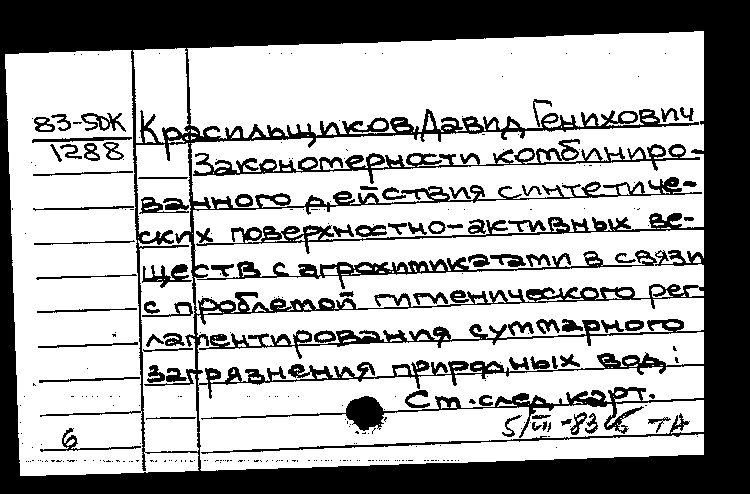 83-5DK
1288
Красильщиков, Давид Генихович.
Закономерности комбиниро-
ванного действия синтетиче-
ских поверхностно-активных ве-
ществ с агрохимикатами в связи
с проблемой гигиенического рег-
ламентирования суммарного
загрязнения природных вод:
См. след. карт.
6
5/VII-83 ТА